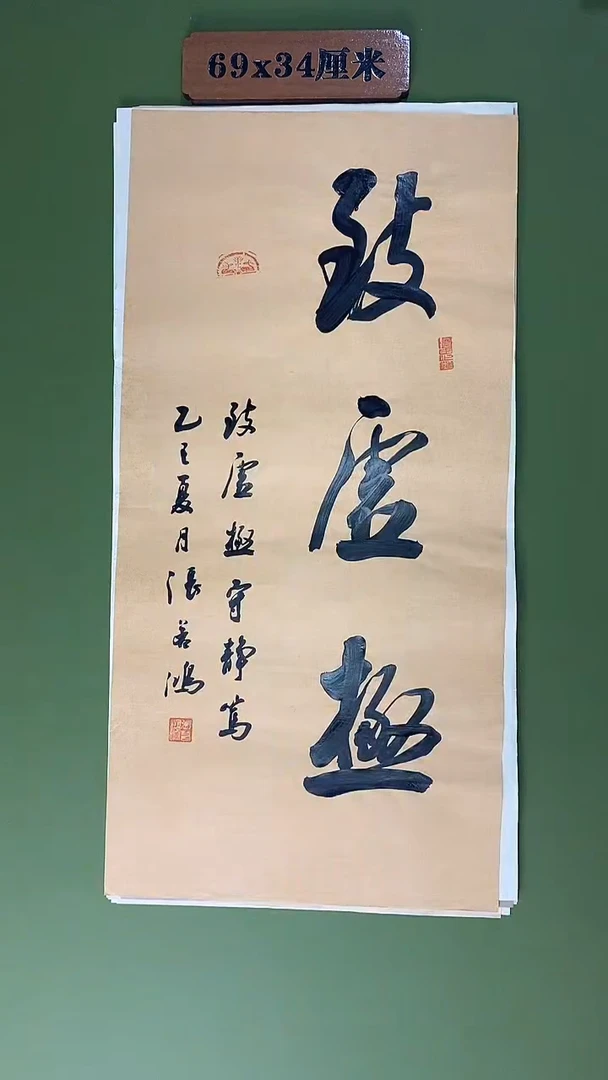 69x34厘米
致虚極
致虚極守静篤
乙巳夏月張若鴻